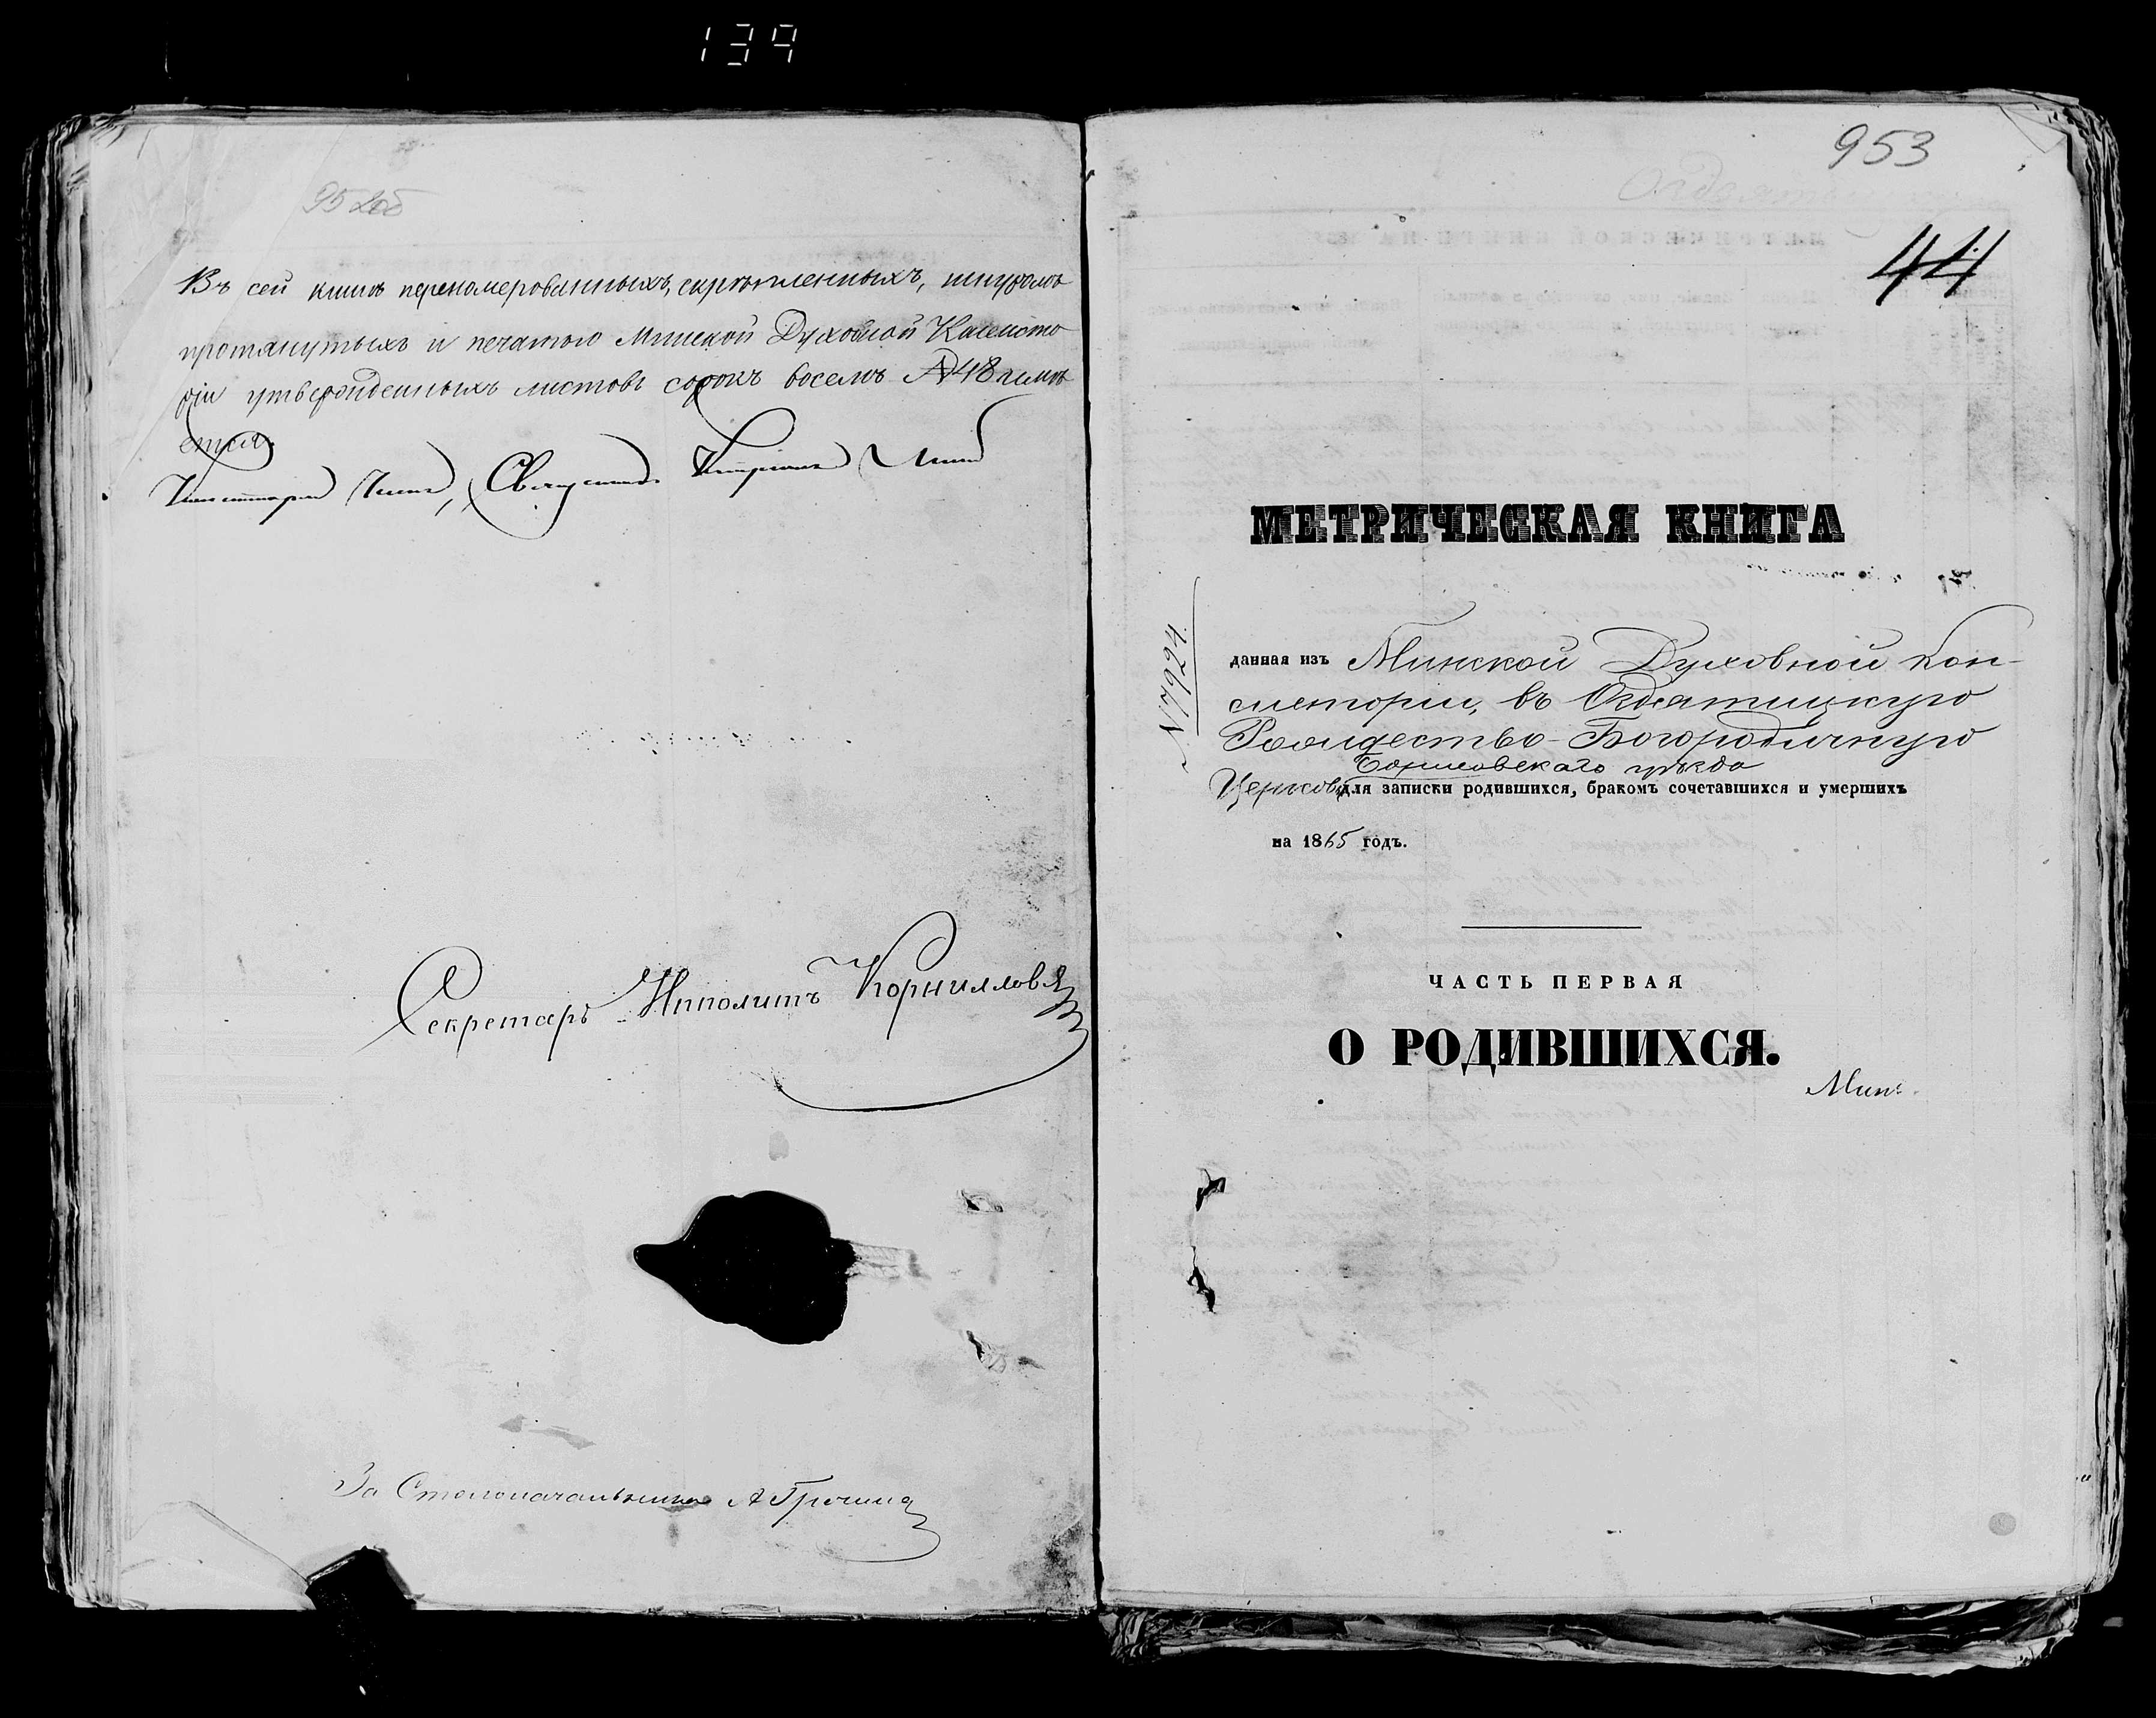 139
952об
Въ сей книгѣ перенумерованныхъ, скрѣпленныхъ, шнуромъ
протянутыхъ и печатью Минской Духовной Консисто
ріи утвержденныхъ листовъ сорокъ восемь 48 имѣ
ется.
Консисторіи Членъ, Священникъ
Секретарь Ипполитъ Корнилловъ
За Столоначальника
953
44
МЕТРИЧЕСКАЯ КНИГА
N 7924.
данная изъ Минской Духовной Кон-
систоріи, въ Оздятицкую
Рождество-Богородичную
Борисовскаго уѣзда
Церковь для записки родившихся, бракомъ сочетавшихся и умершихъ
на 1865 годъ.
ЧАСТЬ ПЕРВАЯ
О РОДИВШИХСЯ.